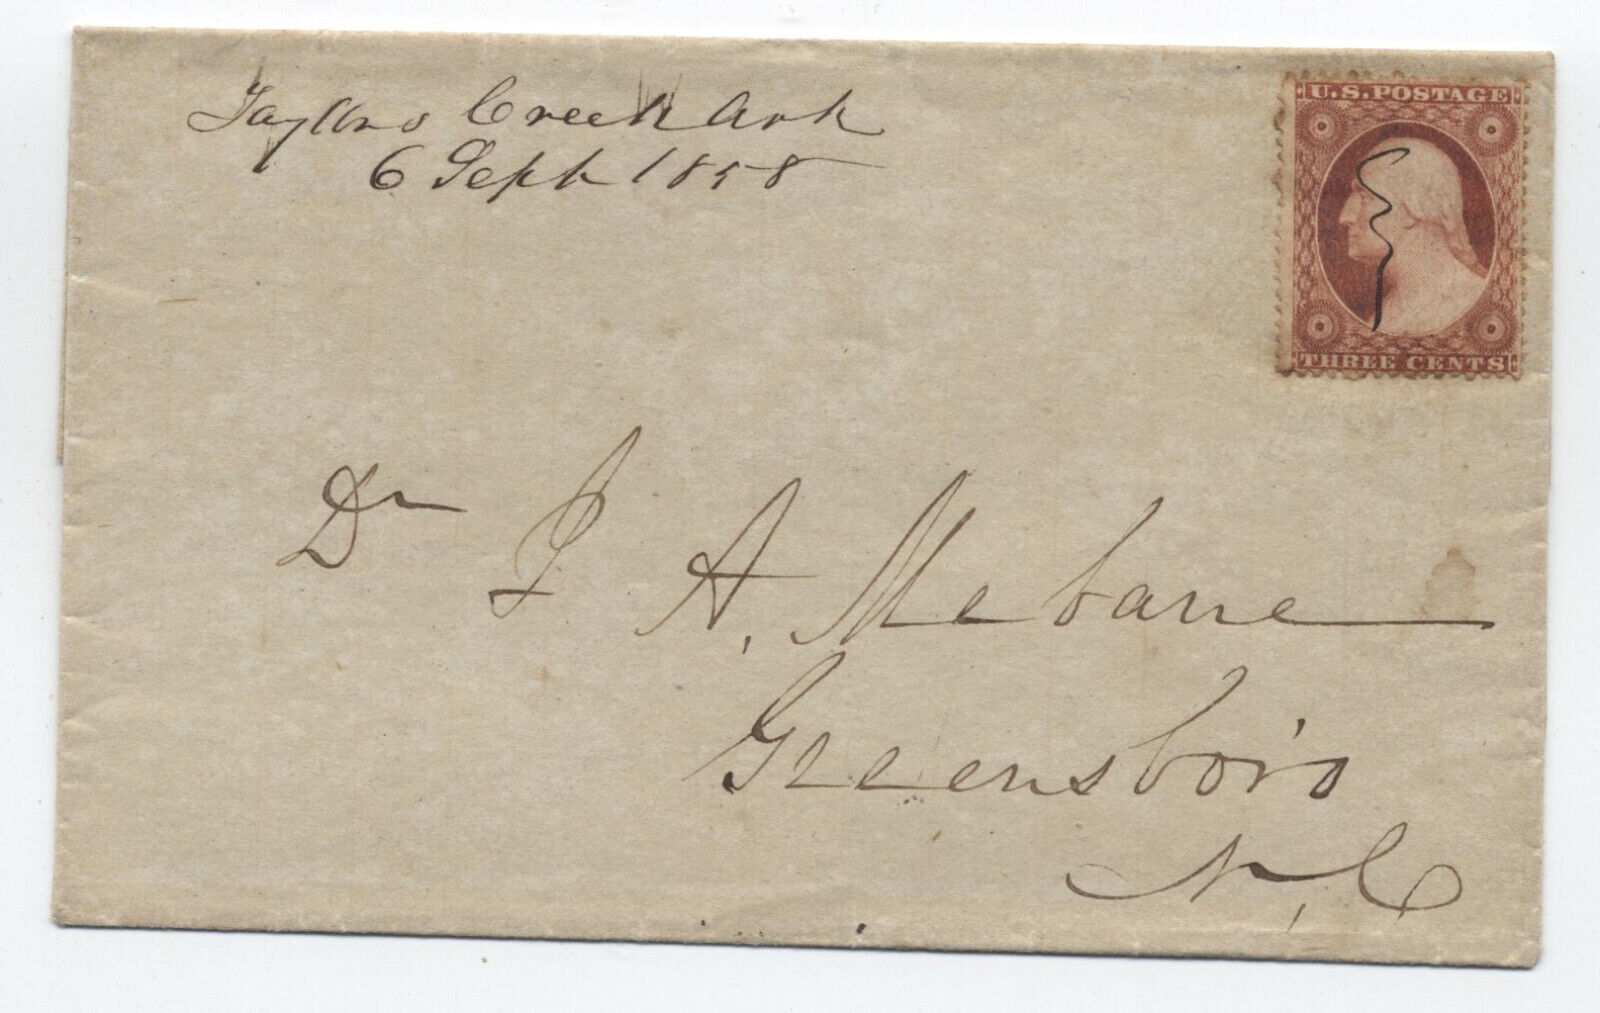 Taylors Creek Ark
6 Sept 1858
U.S. POSTAGE
THREE CENTS
Dr J A. Mebane
Greensboro
N, C